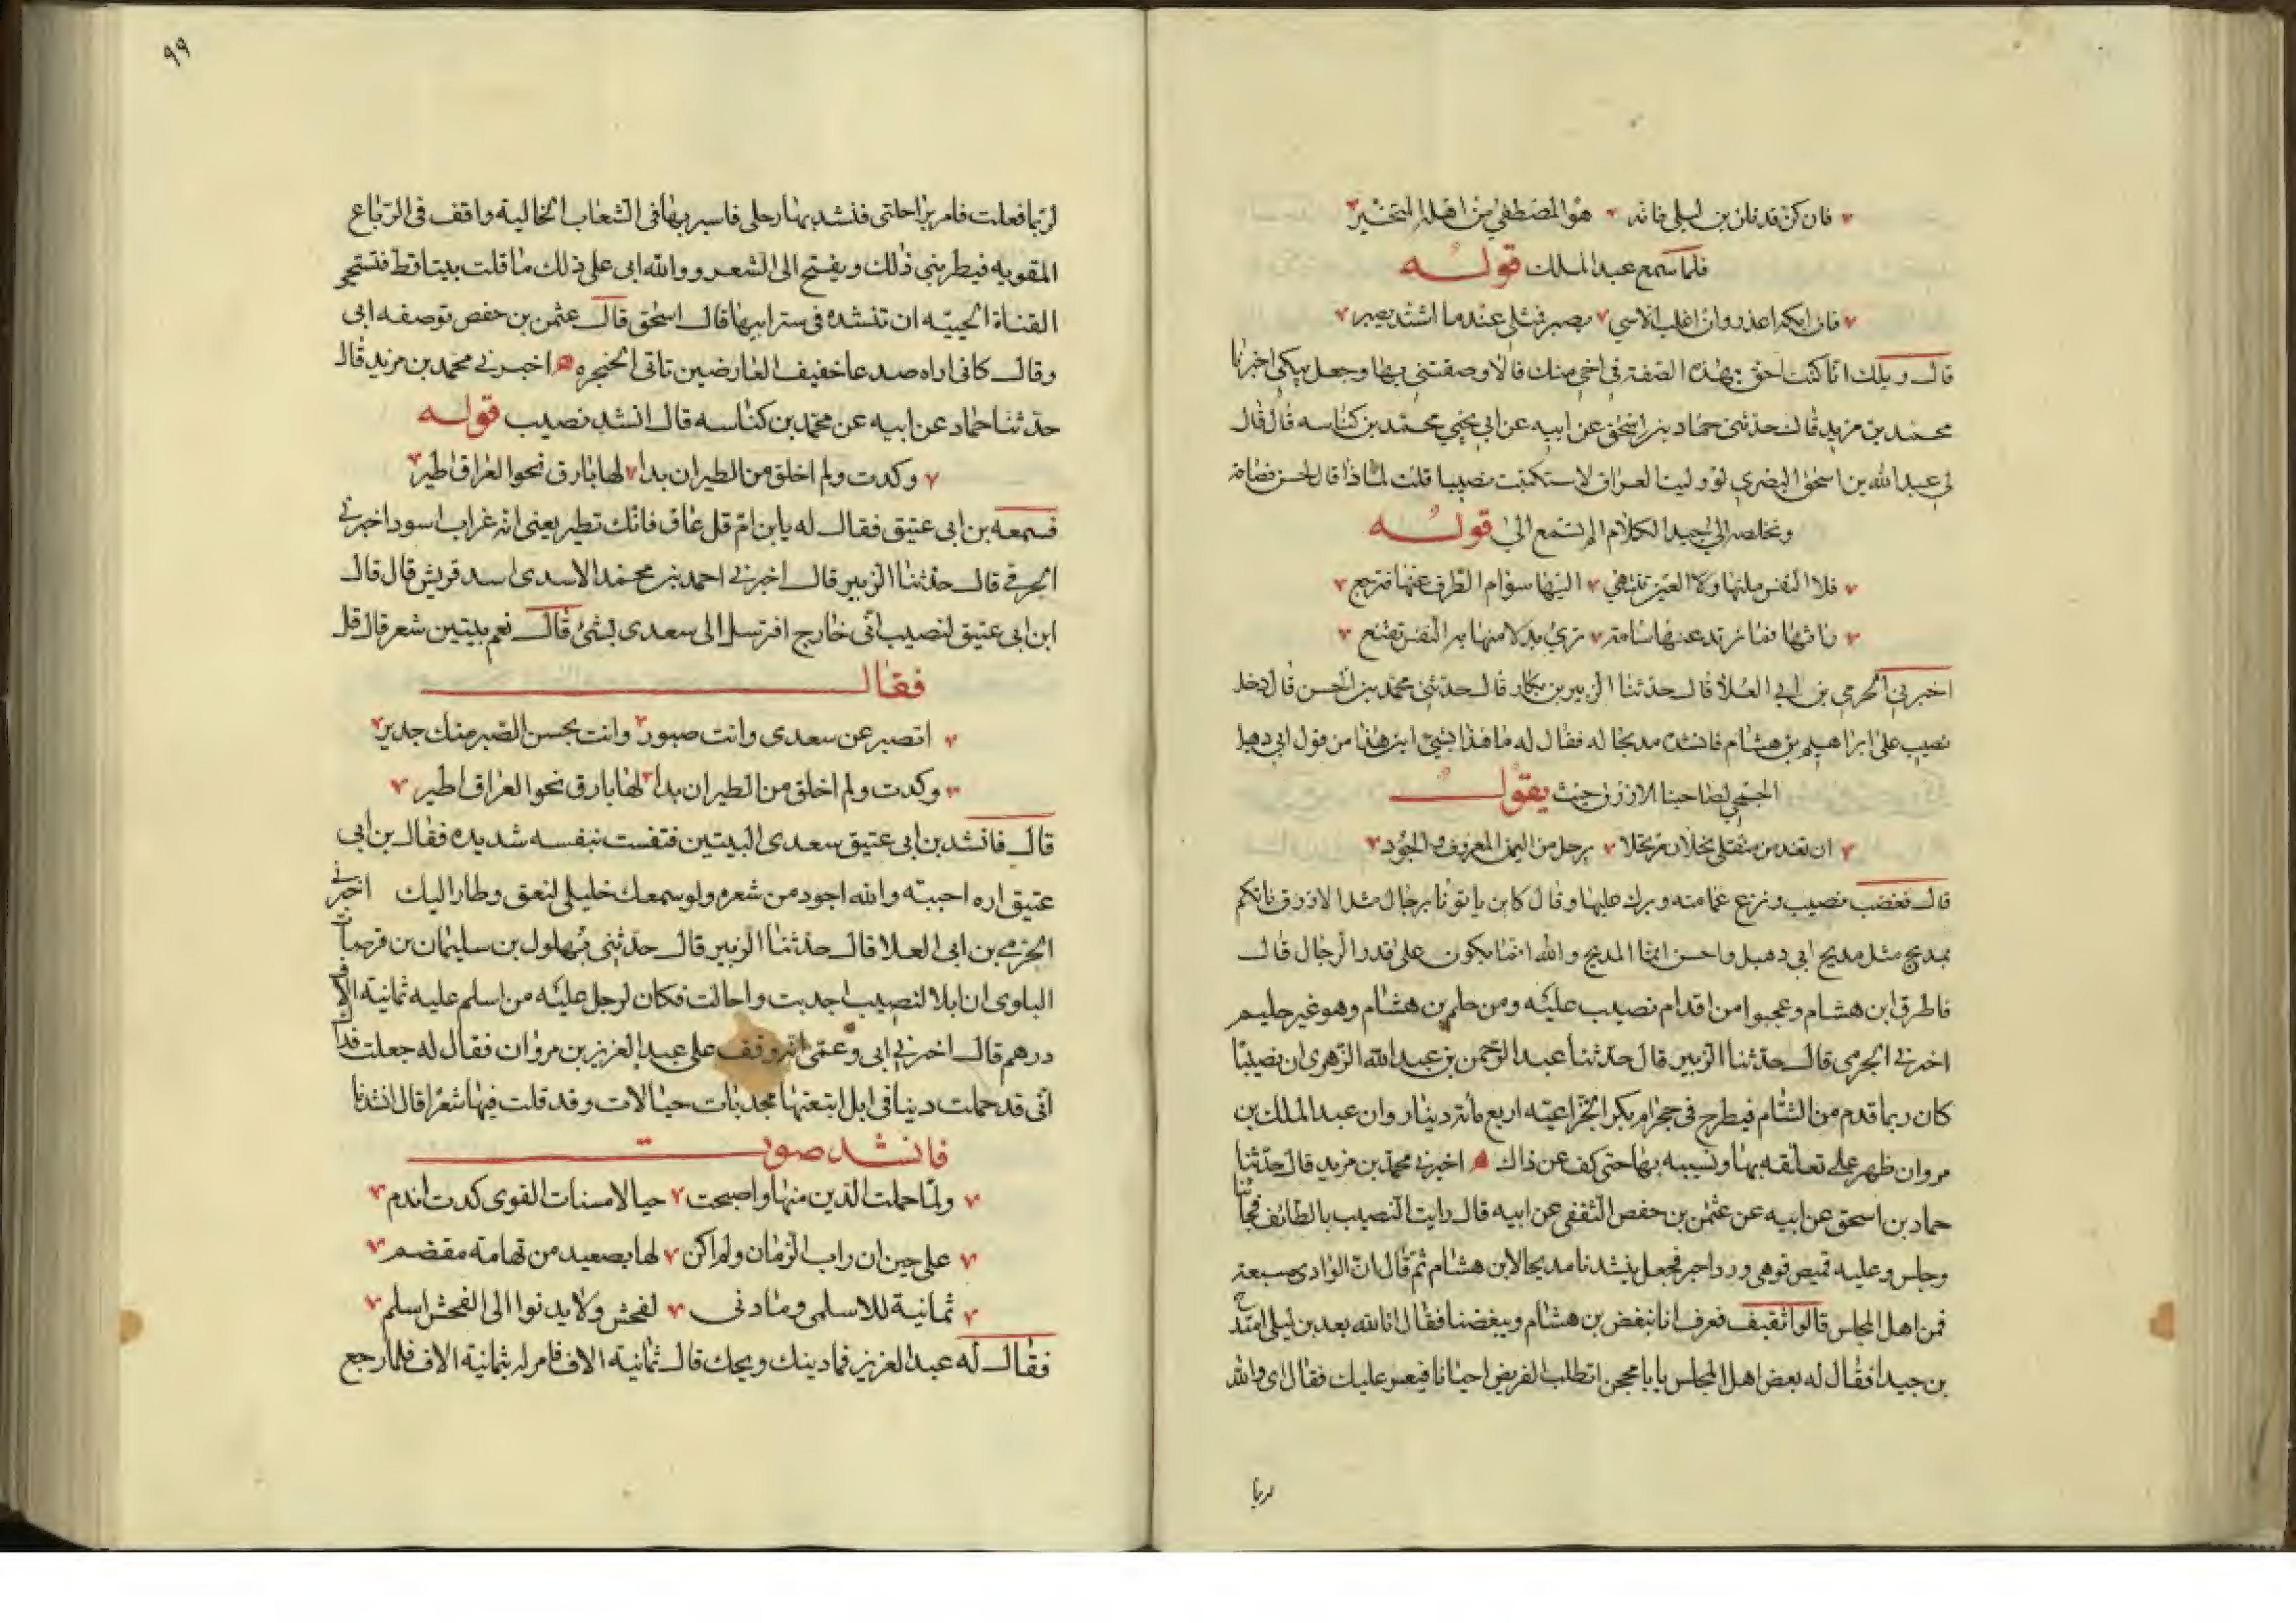 فان كن قد فلن بن ليلى فانه هو المصطفى من اهله المتخير
فلما سمع عبد الملك قوله
فان ابكه اعذر وان اغلب الاسي بصبر فمثلي عندما اشتد يصبر
قال ويلك انا كنت احق بهذه الصفة في اخي منك فالا وصفتني بها وجعل يبكي اخبرنا
محمد بن مزيد قال حدثنى حماد بن اسحق عن ابيه عن ابي يحيي محمد بن كناسه قال قال
لي عبد الله بن اسحق البصري لو وليت العراق لاستكتبت نصيبا قلت لماذا قال لحسن فصاحته
وتخلصه الى جيد الكلام الم تسمع الى قوله
فلا النفس ملتها ولا العين تنتهي اليها سوام الطرف عنها فترجع
راتها فما ترتد عنها سامة ترى بدلا منها به النفس تقنع
اخبرني الحرمي بن ابي العلا قال حدثنا الزبير بن بكار قال حدثنى محمد بن الحسن قال دخل
نصيب على ابراهيم بن هشام فانشده مديحا له فقال له ما هذا بشئ اين هذا من قول ابي دهبل
الجمحي لصاحبنا الازرق حيث يقول
ان تغد من منقلى نخلان مرتحلا يرحل من اليمن المعروف والجود
قال فغضب نصيب ونزع عمامته وبرك عليها وقال كان ياتونا برجال مثل الازرق فاتكم
بمديح مثل مديح ابي دهبل واحسن انما المديح والله انما يكون على قدر الرجال قال
فاطرق ابن هشام وعجبوا من اقدام نصيب عليه ومن حلم بن هشام وهو غير حليم
اخبرنى الحرمى قال حدثنا الزبير قال حدثنا عبد الرحمن بن عبد الله الزهرى ان نصيبا
كان ربما قدم من الشام فيطرح في حجر ام بكر الخزاعيه اربع مائة دينار وان عبد الملك بن
مروان ظهر على تعلقه بها وتشبيبه بها حتى كف عن ذاك ه اخبرنى محمد بن مزيد قال حدثنا
حماد بن اسحق عن ابيه عن عثمن بن حفص الثقفى عن ابيه قال رايت النصيب بالطائف فجأنا
وجلس وعليه قميص قوهى وردا حبر فجعل ينشدنا مديحا لابن هشام ثم قال ان الوادى مسبعة
فمن اهل المجلس قالوا ثقيف فعرف انا نبغض بن هشام ويبغضنا فقال انا لله بعد بن ليلى امتدح
بن جيدا فقال له بعض اهل المجلس يا ابا محجن اتطلب القريض احيانا فيعسر عليك فقال اى والله
لربما
٩٩
لربما فعلت فامر براحلتى فنشد بها رحلى فاسير بها فى الشعاب الخالية واقف فى الرباع
المقويه فيطربنى ذلك ويفتح الى الشعر ووالله انى على ذلك ما قلت بيتا قط فتستحى
الفتاة الحييه ان تنشده فى ستر ابيها قال اسحق قال عثمن بن حفص توصفه ابى
وقال كانى اراه صدعا خفيف العارضين ناتى الحنجره ه اخبرنى محمد بن مزيد قال
حدثنا حماد عن ابيه عن محمد بن كناسه قال انشد نصيب قوله
وكدت ولم اخلق من الطير ان بدا لها بارق نحو العراق اطير
فسمعه بن ابى عتيق فقال له يابن ام قل غاق فانك تطير يعنى انه غراب اسود اخبرنى
الحرمى قال حدثنا الزبير قال اخبرنى احمد بن محمد الاسدى اسد قريش قال قال
ابن ابى عتيق لنصيب انى خارج افترسل الى سعدى بشئ قال نعم بيتين شعر قال قل
فقال
اتصبر عن سعدى وانت صبور وانت بحسن الصبر منك جدير
وكدت ولم اخلق من الطير ان بدا لها بارق نحو العراق اطير
قال فانشد بن ابى عتيق سعدى البيتين فتنفست نبفسه شديده فقال بن ابى
عتيق اره اجبته والله اجود من شعره ولو سمعك خليلى لنعق وطار اليك اخبرنى
الحرمى بن ابى العلا قال حدثنا الزبير قال حدثنى بهلول بن سليمان بن قرضاب
البلوى ان ابلا لنصيب اجدبت واحالت فكان لرجل عليه من اسلم عليه ثمانية الاف
درهم قال اخبرنى ابى وعمى انه وقف على عبد العزيز بن مروان فقال له جعلت فداك
انى قد حملت دينا فى ابل ابتعتها مجدبات حيالات وقد قلت فيها شعرا قال انشدنا
فانشد صوت
ولما حملت الدين منها واصبحت حيالا مسنات القوى كدت اندم
على حين ان راب الزمان ولم اكن لها بصعيد من تهامة مقضم
ثمانية للاسلمى وما دنى لفحش ولا يدنوا الى الفحش اسلم
فقال له عبد العزيز فما دينك ويحك قال ثمانية الاف فامر له بثمانية الاف فلما رجع